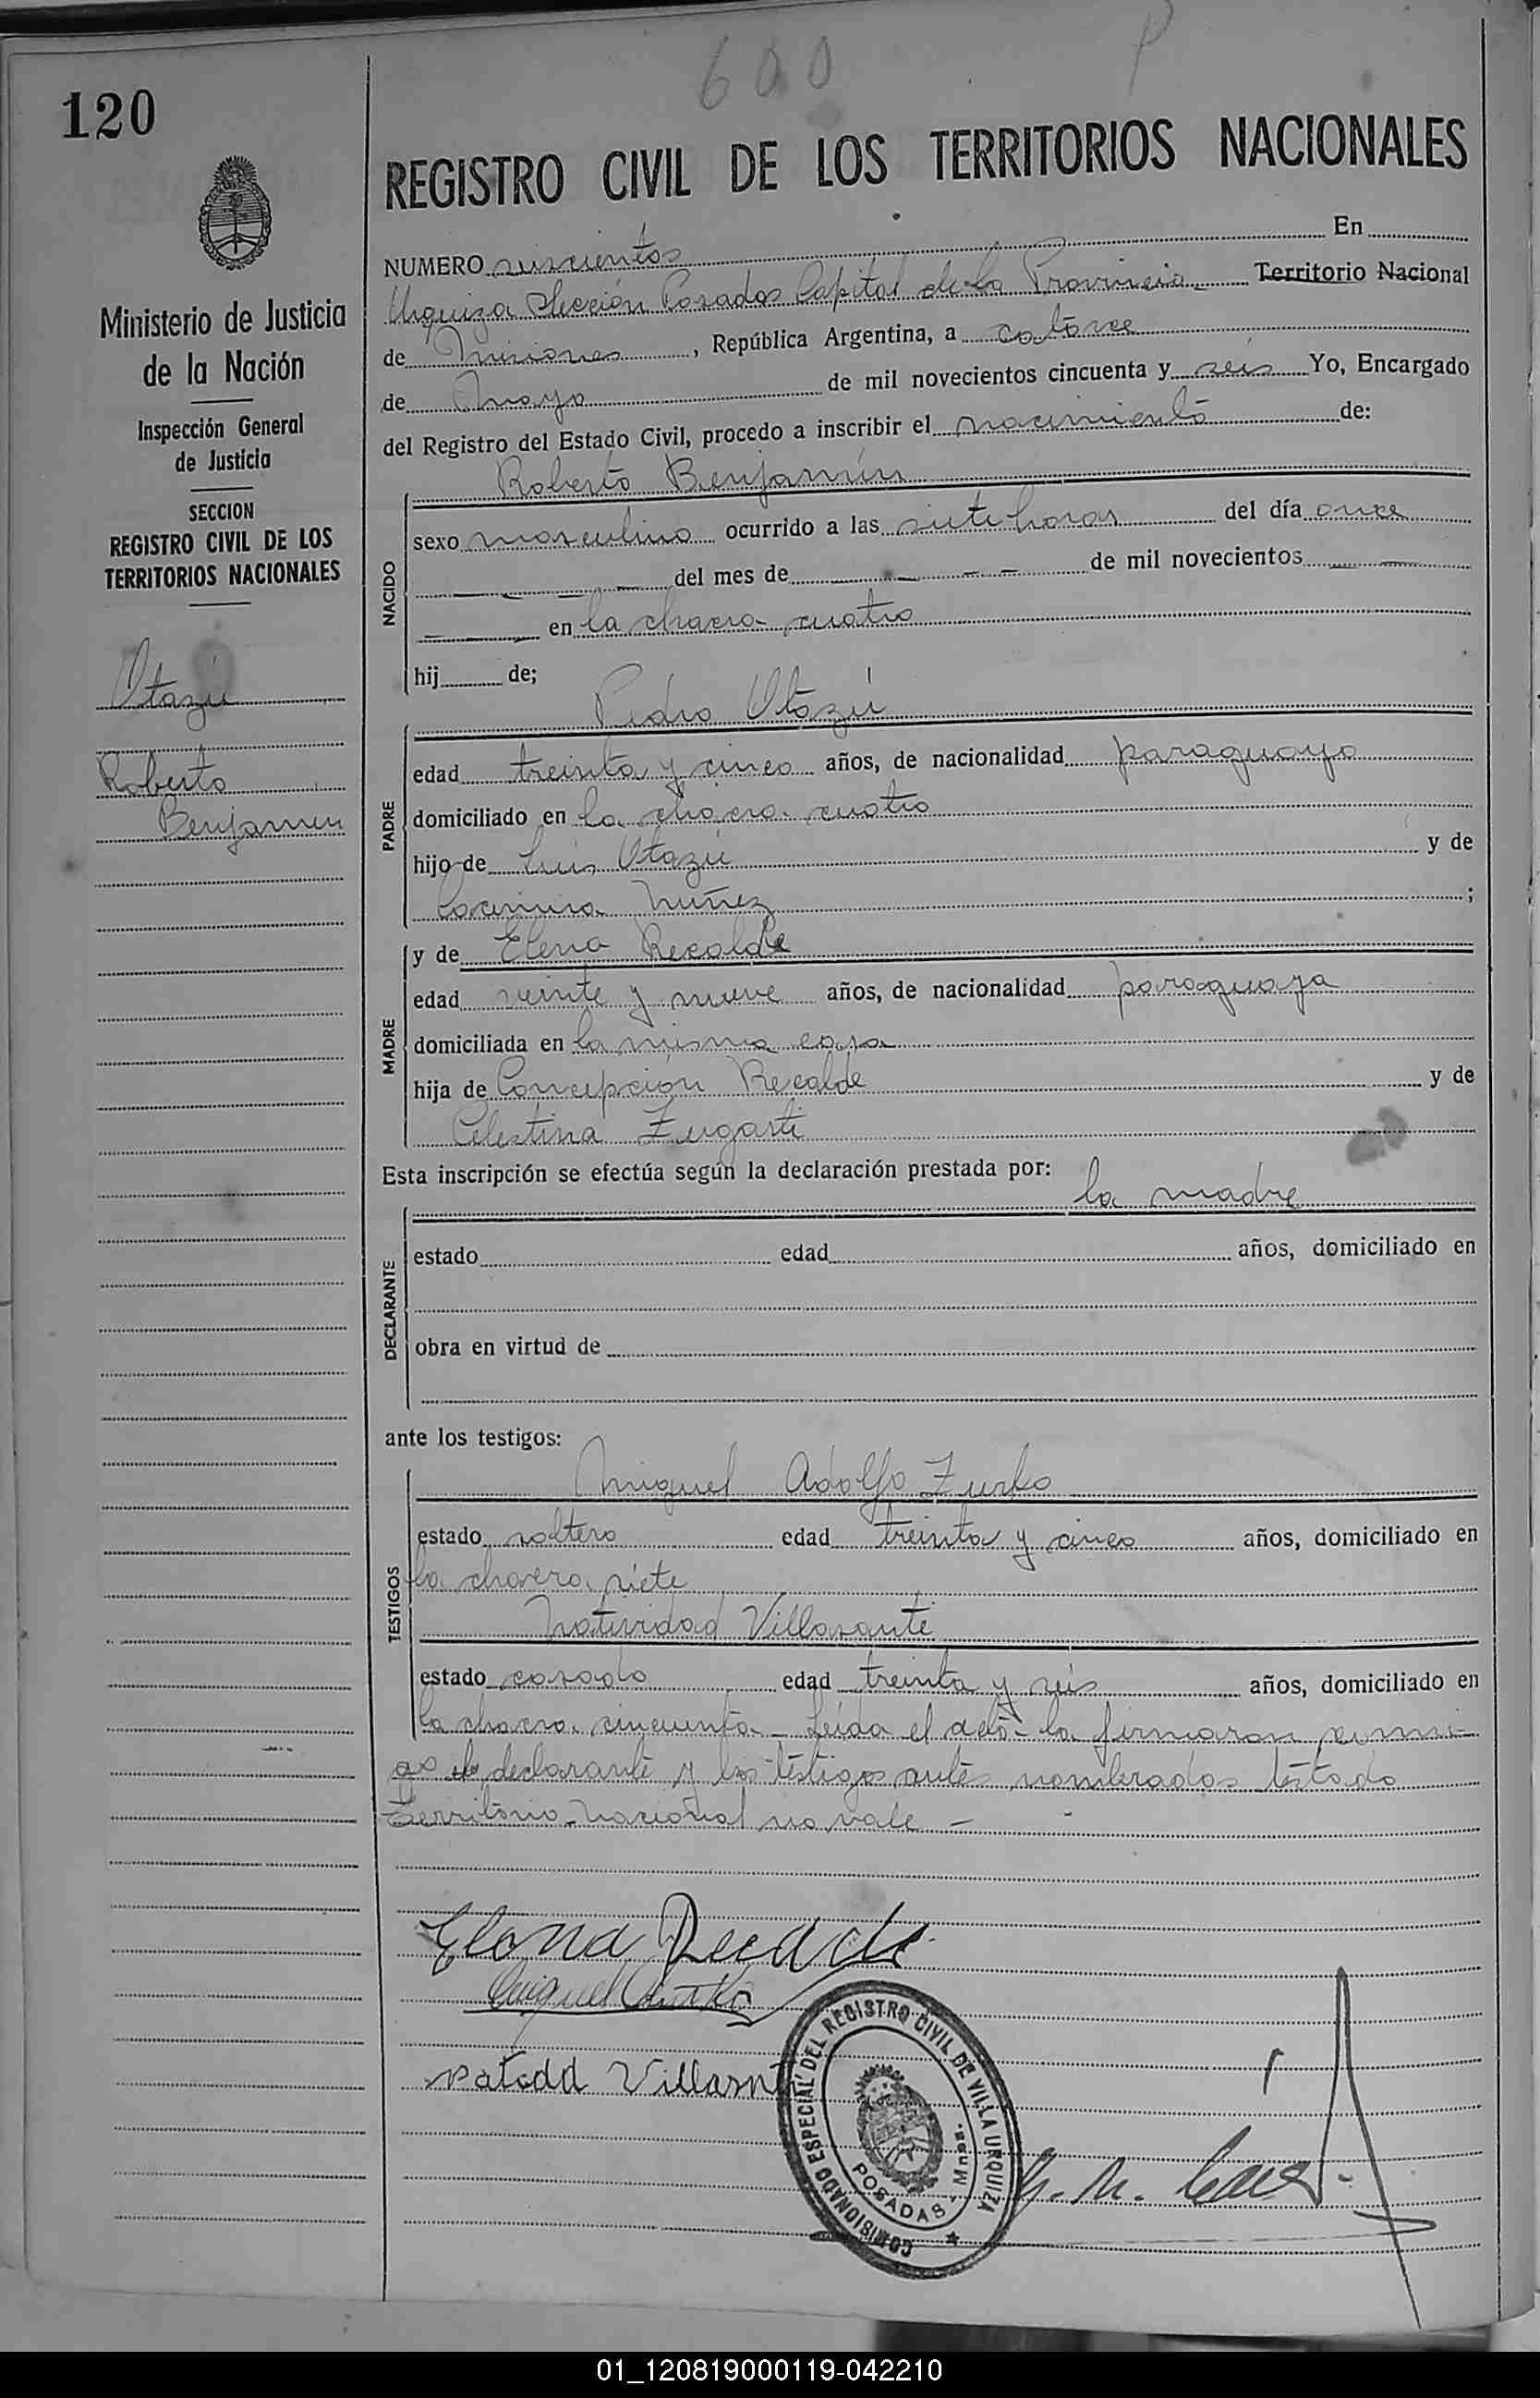 600 P
120
REGISTRO CIVIL DE LOS TERRITORIOS NACIONALES
Ministerio de Justicia
de la Nación
Inspección General
de Justicia
SECCION
REGISTRO CIVIL DE LOS
TERRITORIOS NACIONALES
Otazú
Roberto
Benjamin
NUMERO seiscientos En
Urquiza Sección Posadas Capital de la Provincia Territorio Nacional
de Misiones, República Argentina, a catorce
de Mayo de mil novecientos cincuenta y seis Yo, Encargado
del Registro del Estado Civil, procedo a inscribir el nacimiento de:
Roberto Benjamín
NACIDO
sexo masculino ocurrido a las siete horas del día once
— — — — del mes de — — — de mil novecientos — —
— — — en la chacra cuatro
hij de;
Pedro Otazú
PADRE
edad treinta y cinco años, de nacionalidad paraguayo
domiciliado en la chacra cuatro
hijo de Luis Otazú y de
Núñez ;
MADRE
y de Elena Recalde
edad veinte y nueve años, de nacionalidad paraguaya
domiciliada en la misma casa
hija de Concepción Recalde y de
Celestina Zugasti
Esta inscripción se efectúa según la declaración prestada por:
la madre
DECLARANTE
estado edad años, domiciliado en
obra en virtud de
ante los testigos:
Miguel Adolfo Zurko
TESTIGOS
estado soltero edad treinta y cinco años, domiciliado en
la chacra siete
Natividad Villasante
estado casado edad treinta y seis años, domiciliado en
la chacra cincuenta — Leída el acta la firmaron conmi-
go declarante y los testigos antes nombrados testado
Territorio Nacional no vale —
Elena Recalde
Miguel Zurko
Natidd Villasnt
COMISIONADO ESPECIAL DEL REGISTRO CIVIL DE VILLA URQUIZA
POSADAS - Mnes.
01_120819000119-042210